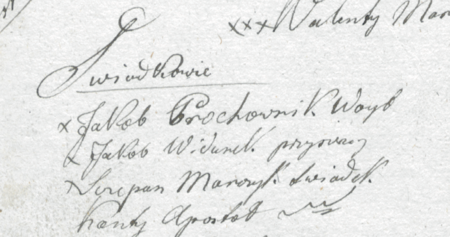 xxx Walenty Mar
Swiadkowie
x Jakob Prochownik Woyt
x Jakob Widurek przysiezny
x Sczepan Marczyk swiadek
Kanty Apostol